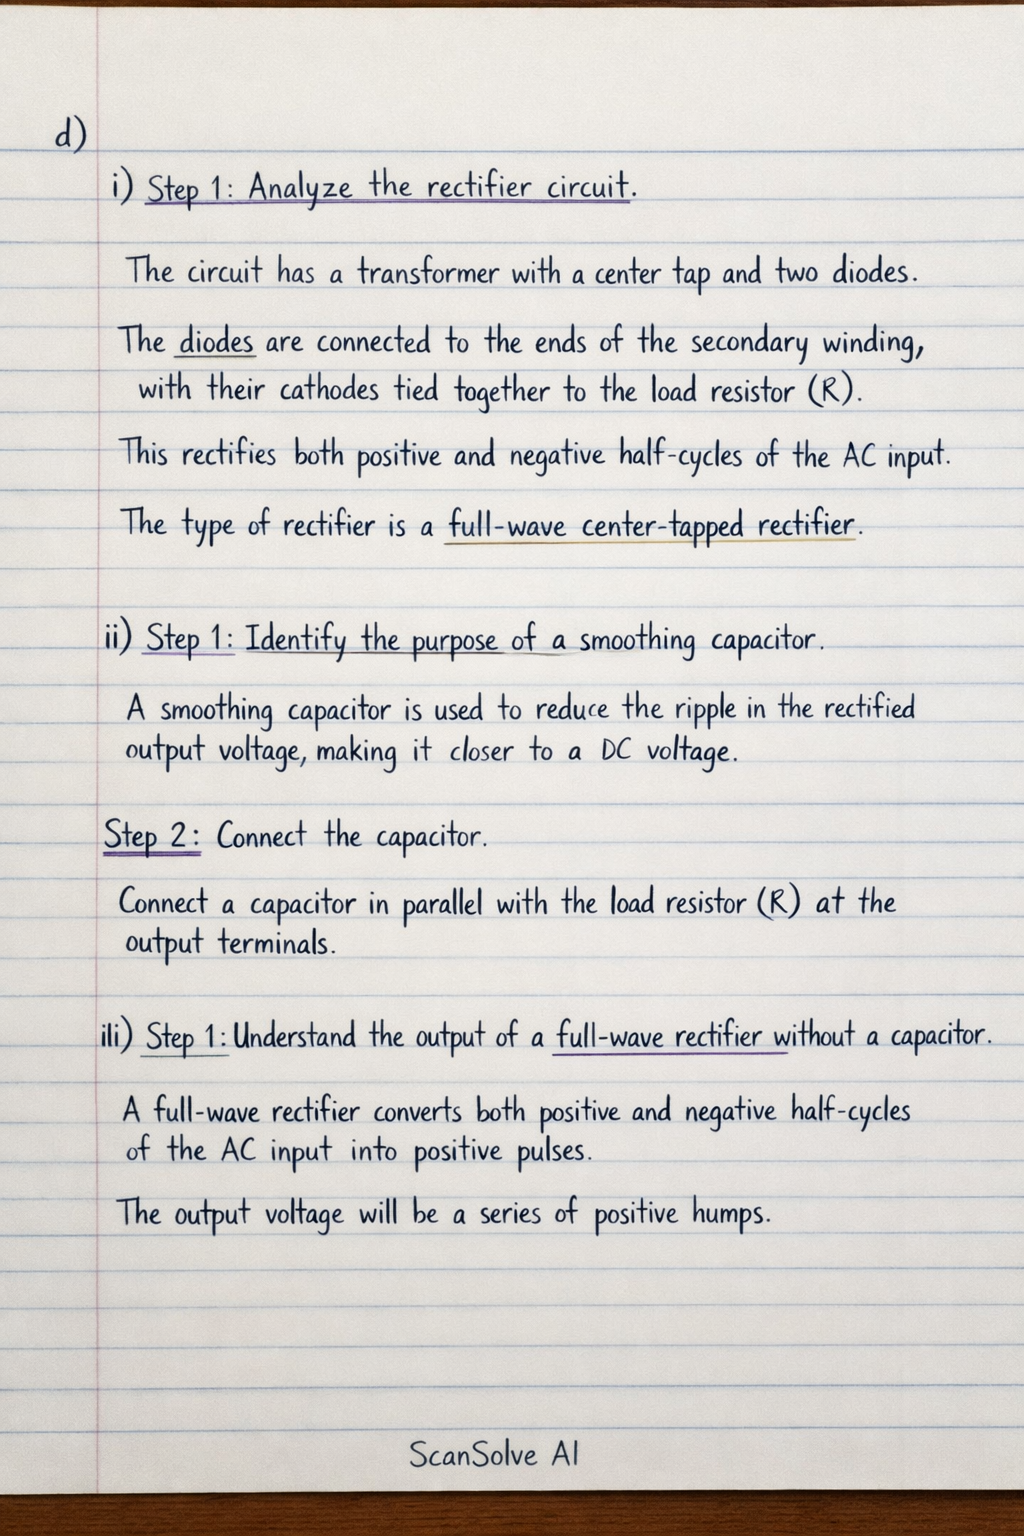 d)
i) Step 1: Analyze the rectifier circuit.
The circuit has a transformer with a center tap and two diodes.
The diodes are connected to the ends of the secondary winding,
with their cathodes tied together to the load resistor (R).
This rectifies both positive and negative half-cycles of the AC input.
The type of rectifier is a full-wave center-tapped rectifier.
ii) Step 1: Identify the purpose of a smoothing capacitor.
A smoothing capacitor is used to reduce the ripple in the rectified
output voltage, making it closer to a DC voltage.
Step 2: Connect the capacitor.
Connect a capacitor in parallel with the load resistor (R) at the
output terminals.
iii) Step 1: Understand the output of a full-wave rectifier without a capacitor.
A full-wave rectifier converts both positive and negative half-cycles
of the AC input into positive pulses.
The output voltage will be a series of positive humps.
ScanSolve AI